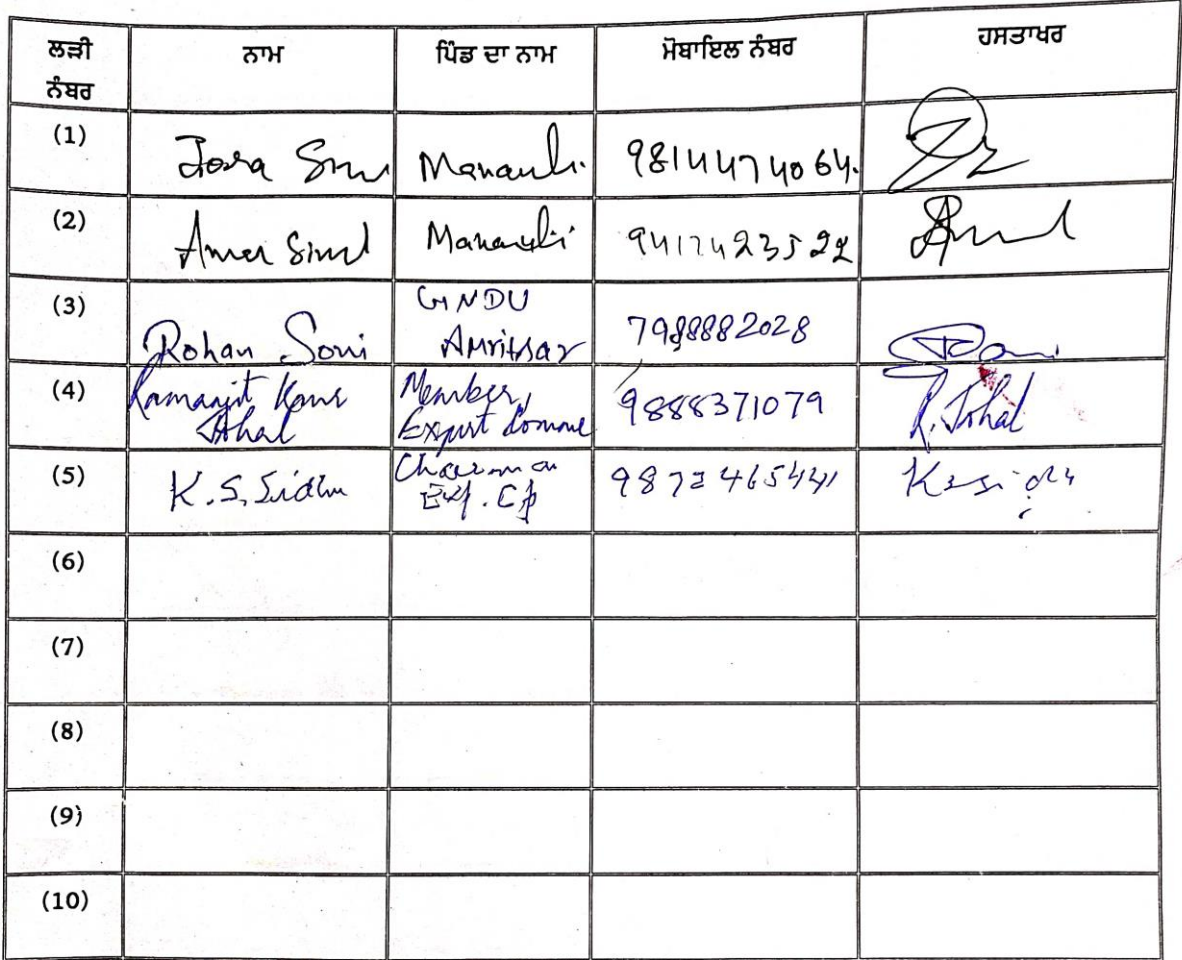 ਲੜੀ ਨੰਬਰ ਨਾਮ ਪਿੰਡ ਦਾ ਨਾਮ ਮੋਬਾਇਲ ਨੰਬਰ ਹਸਤਾਖਰ
(1) Manauli. 9814474064.
(2) Amar Manauli 9417423522
(3) Rohan Soni GNDU Amritsar 7988882028 Soni
(4) Ramanjit Kaur Johal Member, Expert 9888371079 R. Johal
(5) K.S. Sidhu Chairman
(6)
(7)
(8)
(9)
(10)